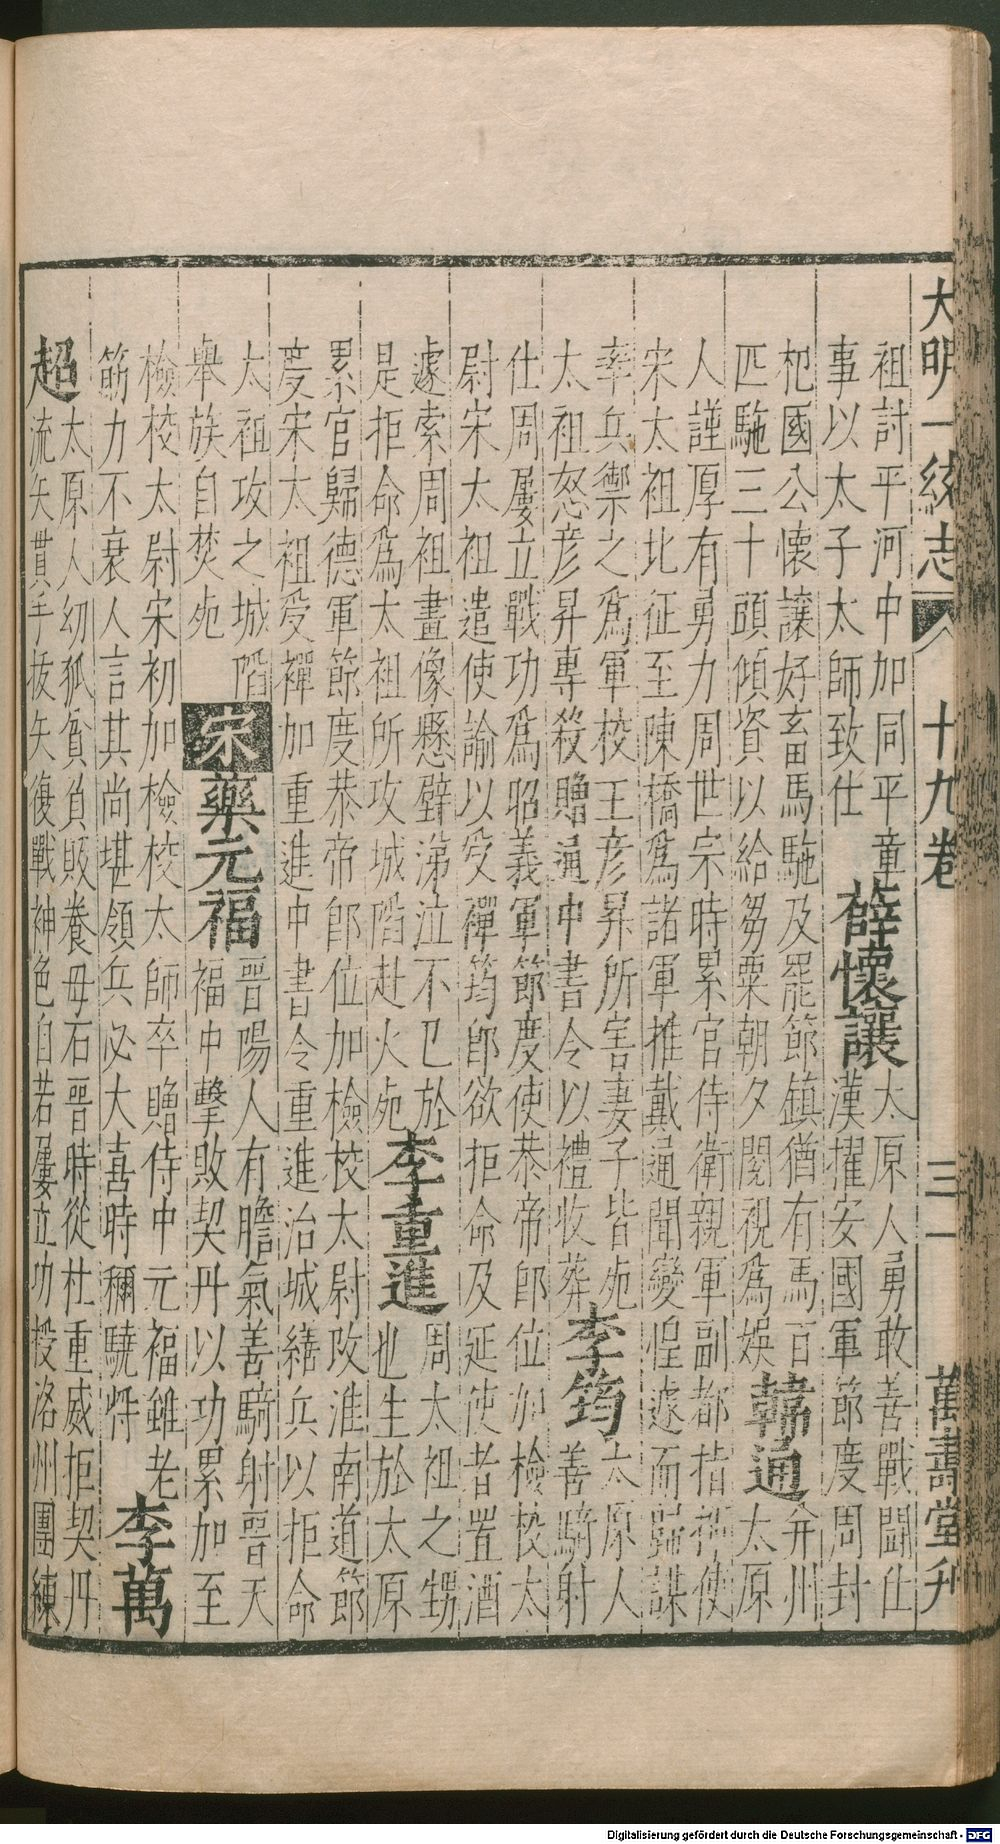 大明一統志 十九卷 三一 萬壽堂刋
祖討平河中加同平章
事以太子太師致仕
薛懷讓
太原人勇敢善戰闘仕
漢擢安國軍節度周封
杞國公懷讓好畜馬駞及罷節鎮猶有馬百
匹駞三十頭傾資以給芻粟朝夕閱視爲娛
韓通
并州
太原
人謹厚有勇力周世宗時累官侍衛親軍副都指揮使
宋太祖北征至陳橋爲諸軍推戴通聞變惶遽而歸謀
率兵禦之爲軍校王彦昇所害妻子皆死
太祖怒彦昇專殺贈通中書令以禮收葬
李筠
太原人
善騎射
仕周屢立戰功爲昭義軍節度使恭帝卽位加檢校太
尉宋太祖遣使諭以受禪筠卽欲拒命及延使者置酒
遽索周祖畫像懸壁涕泣不已於
是拒命爲太祖所攻城䧟赴火死
李重進
周太祖之甥
也生於太原
累官歸德軍節度恭帝卽位加檢校太尉攻淮南道節
度宋太祖受禪加重進中書令重進治城繕兵以拒命
太祖攻之城䧟
舉族自焚死
宋
藥元福
晋陽人有膽氣善騎射晋天
福中擊敗契丹以功累加至
檢校太尉宋初加檢校太師卒贈侍中元福雖老
筋力不衰人言其尚堪領兵必大喜時稱驍將
李萬
超
太原人幼孤貧負販養母石晋時從杜重威拒契丹
流矢貫手拔矢復戰神色自若屢立功授洛州團練